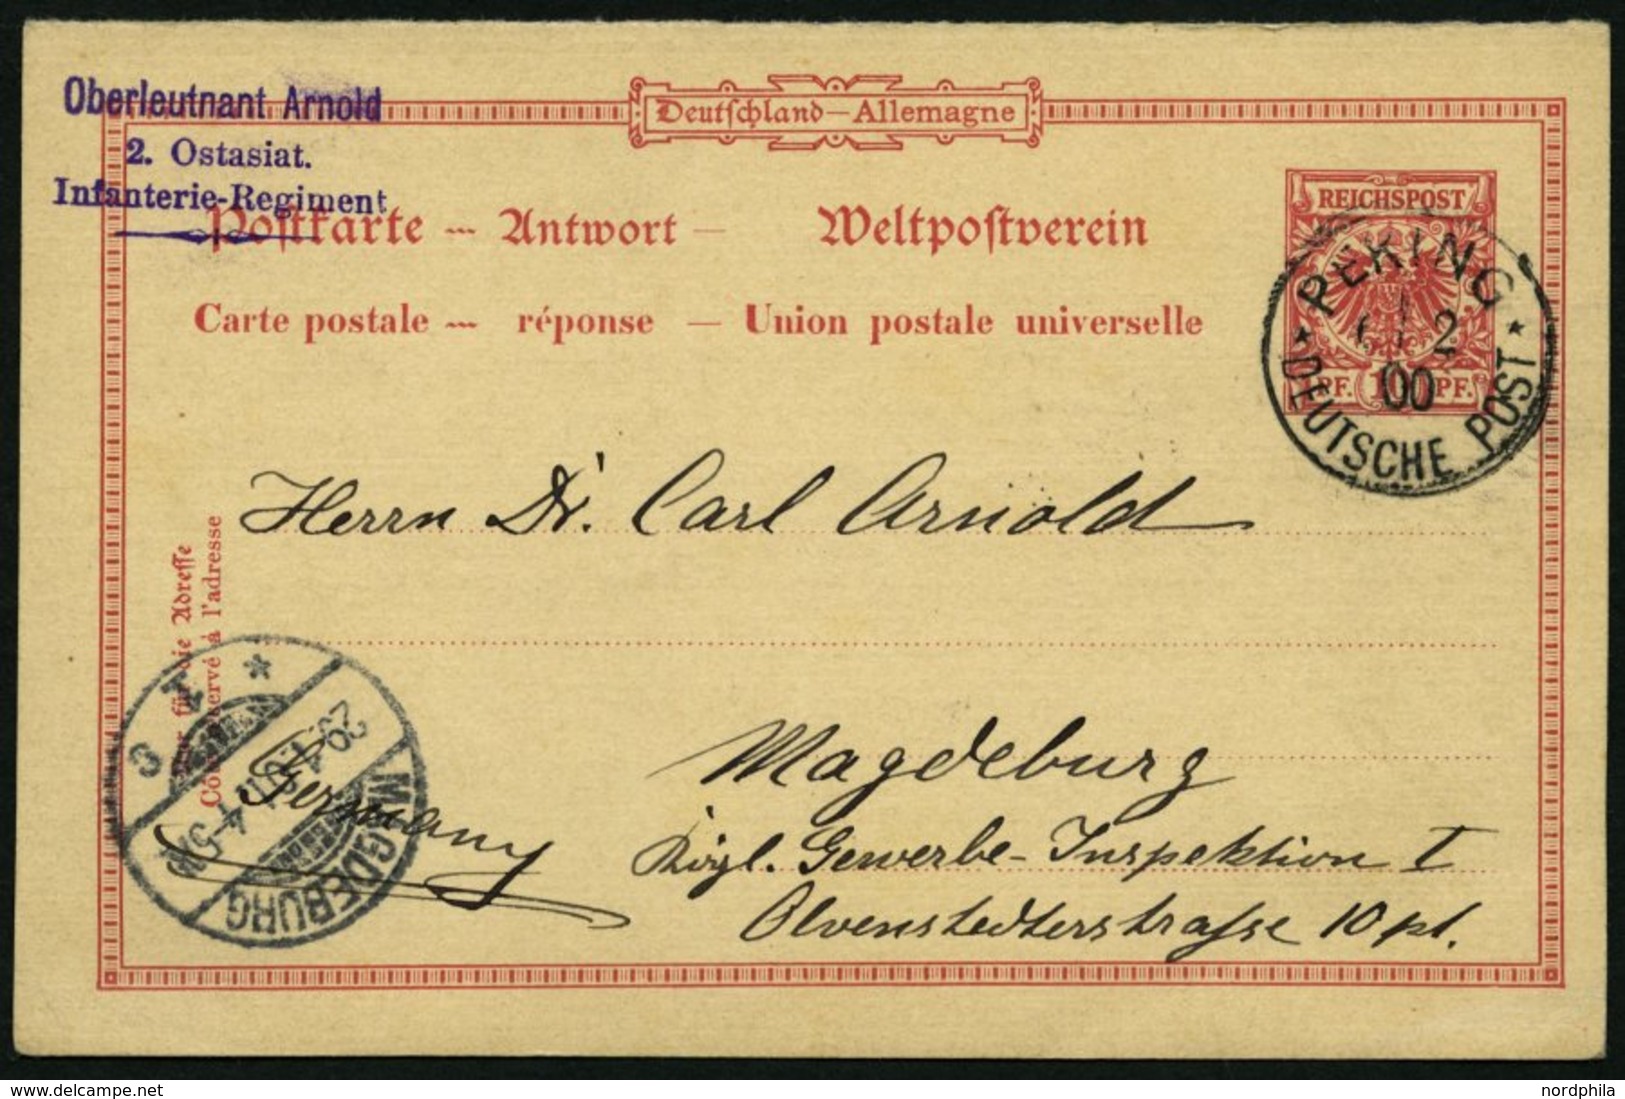 Oberleutnant Arnold
2. Ostasiat.
Infanterie-Regiment
Deutschland — Allemagne
Postkarte — Antwort — Weltpostverein
Carte postale — réponse — Union postale universelle
REICHSPOST
PF. 10 PF.
PEKING
2
00
DEUTSCHE POST
Herrn Dr. Carl Arnold
Magdeburg
Königl. Gewerbe-Inspektion I
Olvenstedterstrasse 10 pt.
Germany
die Adresse
l'adresse
MAGDEBURG
4-5N
nordphila (C)